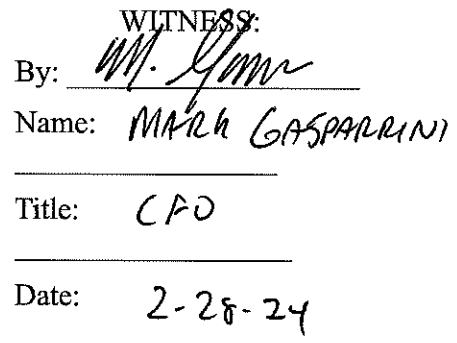 WITNESS:
By:
Name: MARK GASPARRINI
Title: CFO
Date: 2-28-24